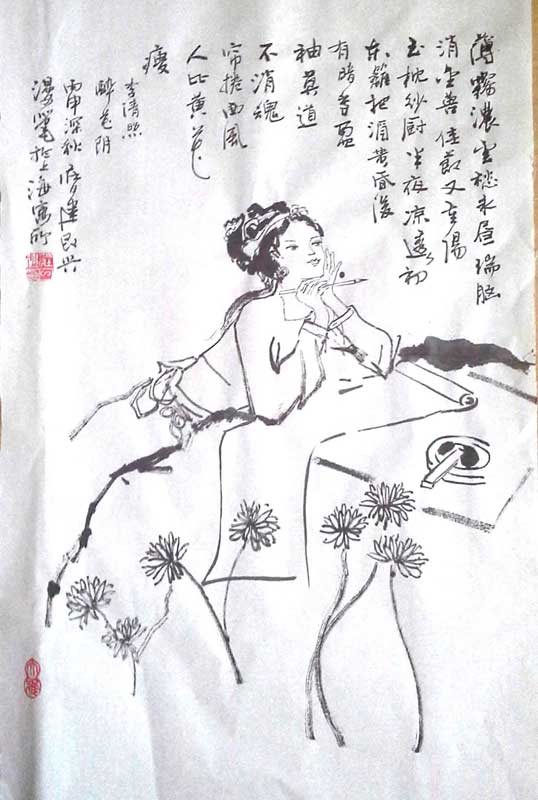 薄霧濃雲愁永昼瑞脑
消金兽佳節又重陽
玉枕纱厨半夜凉透初
东籬把酒黄昏後
有暗香盈
袖莫道
不消魂
帘捲西風
人比黄花
瘦
李清照
醉花阴
丙申深秋
漫筆於上海寓所